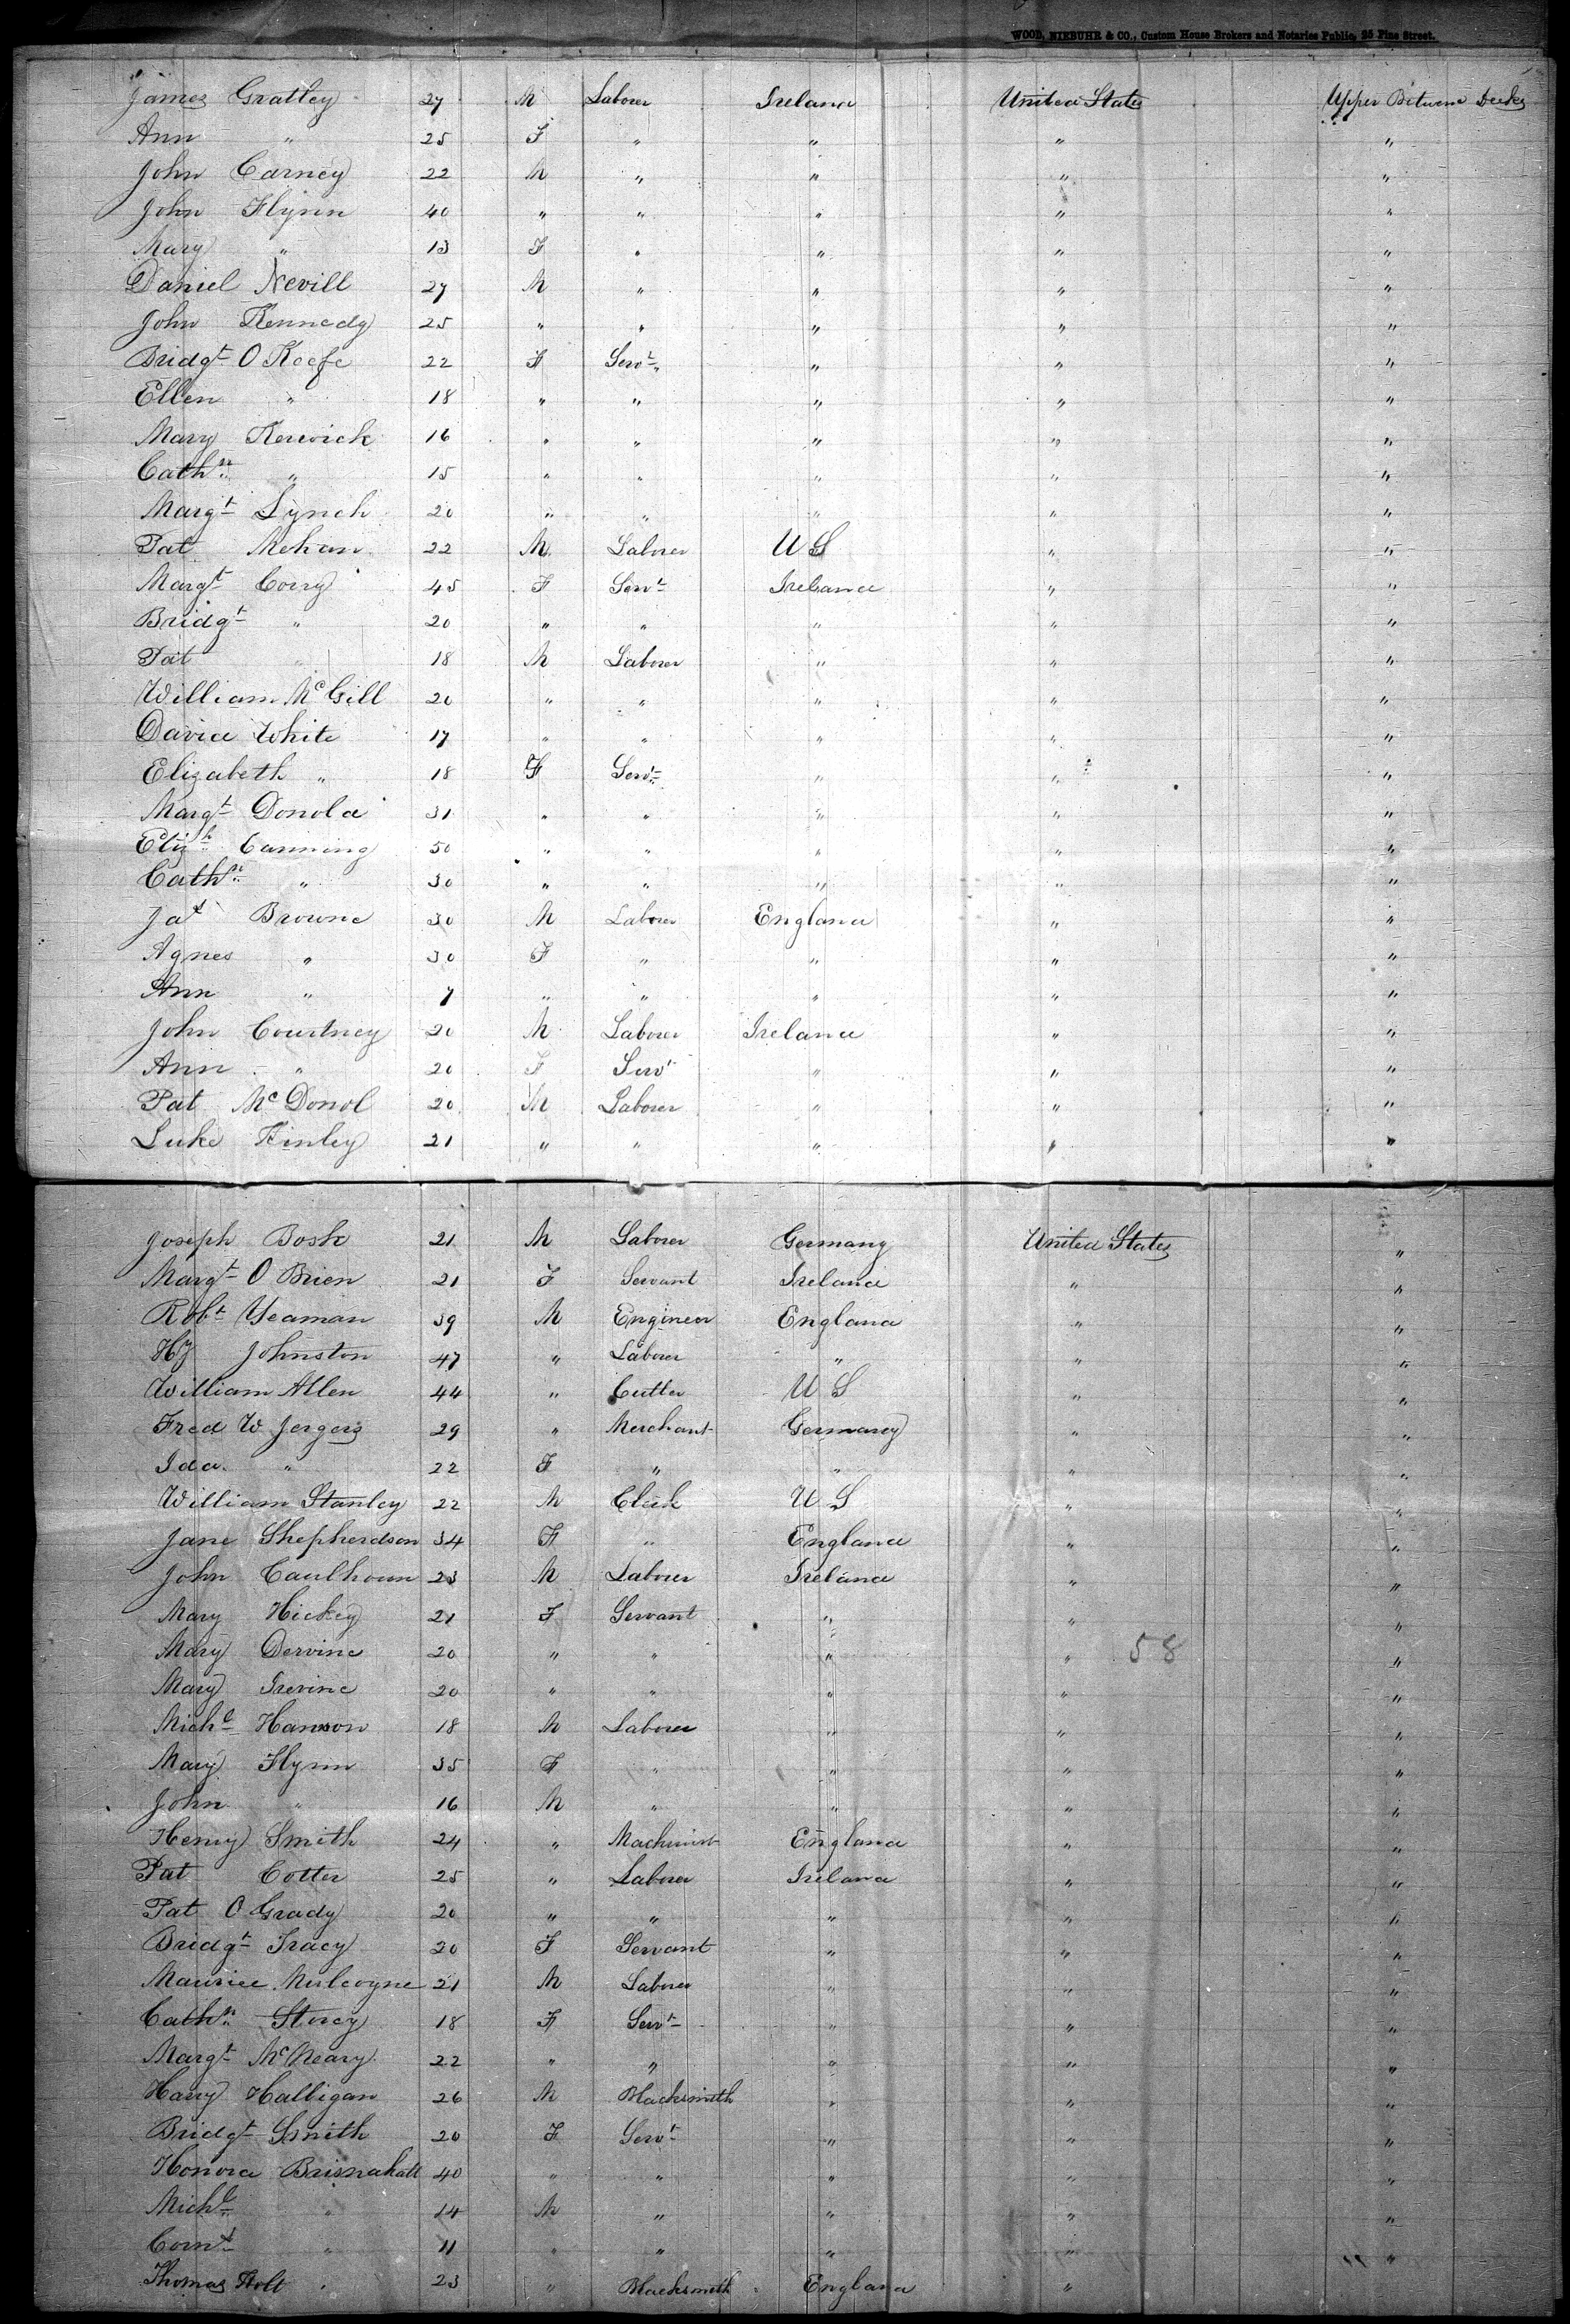 WOOD, NIEBUHR & CO., Custom House Brokers and Notaries Public, 25 Pine Street.
James Gratley 27 M Laborer Ireland United States Upper Between Decks
Ann " 25 F " " " "
John Carney 22 M " " " "
John Flynn 40 " " " " "
Mary " 13 F " " " "
Daniel Nevill 27 M " " " "
John Kennedy 25 " " " " "
Bridgt O Keefe 22 F Servt " " "
Ellen " 18 " " " " "
Mary Kerwick 16 " " " " "
Cathn " 15 " " " " "
Margt Lynch 20 " " " " "
Pat Mehan 22 M Laborer U S " "
Margt Corry 45 F Servt Ireland " "
Bridgt " 20 " " " " "
Pat " 18 M Laborer " " "
William McGill 20 " " " " "
David White 17 " " " " "
Elizabeth " 18 F Servt " " "
Margt Donola 31 " " " " "
Elizh Canning 50 " " " " "
Cathn " 30 " " " " "
Jas Browne 30 M Laborer England " "
Agnes " 30 F " " " "
Ann " 7 " " " " "
John Courtney 20 M Laborer Ireland " "
Ann " 20 F Servt " " "
Pat McDonol 20 M Laborer " " "
Luke Finley 21 " " " " "
Joseph Bosk 21 M Laborer Germany United States "
Margt O Brien 21 F Servant Ireland " "
Robt Yeaman 39 M Engineer England " "
Hy Johnston 47 " Laborer " " "
William Allen 44 " Cutler U S " "
Fred W Jergens 29 " Merchant Germany " "
Ida " 22 F " " " "
William Stanley 22 M Clerk U S " "
Jane Shepherdson 34 F " England " "
John Caulhoun 23 M Laborer Ireland " "
Mary Hickey 21 F Servant " " "
Mary Dervine 20 " " " " 58 "
Mary Irevine 20 " " " " "
Michl Hanson 18 M Laborer " " "
Mary Flynn 35 F " " " "
John " 16 M " " " "
Henry Smith 24 " Machinist England " "
Pat Cotter 25 " Laborer Ireland " "
Pat O Grady 20 " " " " "
Bridgt Tracy 20 F Servant " " "
Maurice Mulcoyne 21 M Laborer " " "
Cathn Storey 18 F Servt " " "
Margt McNeary 22 " " " " "
Harry Halligan 26 M Blacksmith " " "
Bridgt Smith 20 F Servt " " "
Honora Brisnahatt 40 " " " " "
Michl " 14 M " " " "
Cornl " 11 " " " " "
Thomas Holt 23 " Blacksmith England "